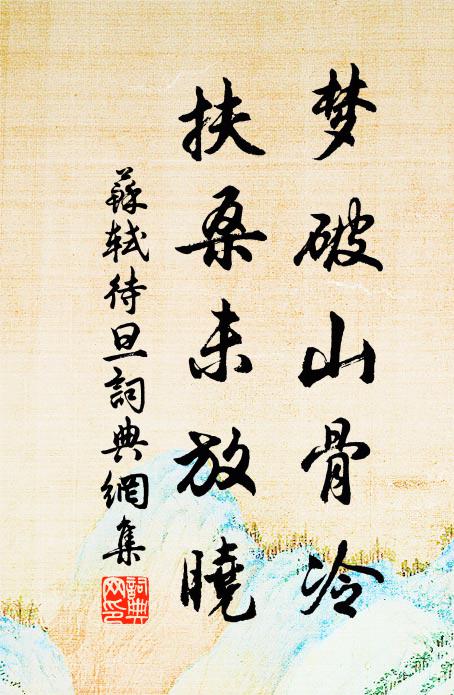 梦破山骨冷
扶桑未放曉
蘇軾待旦詞典網集
詞典网印